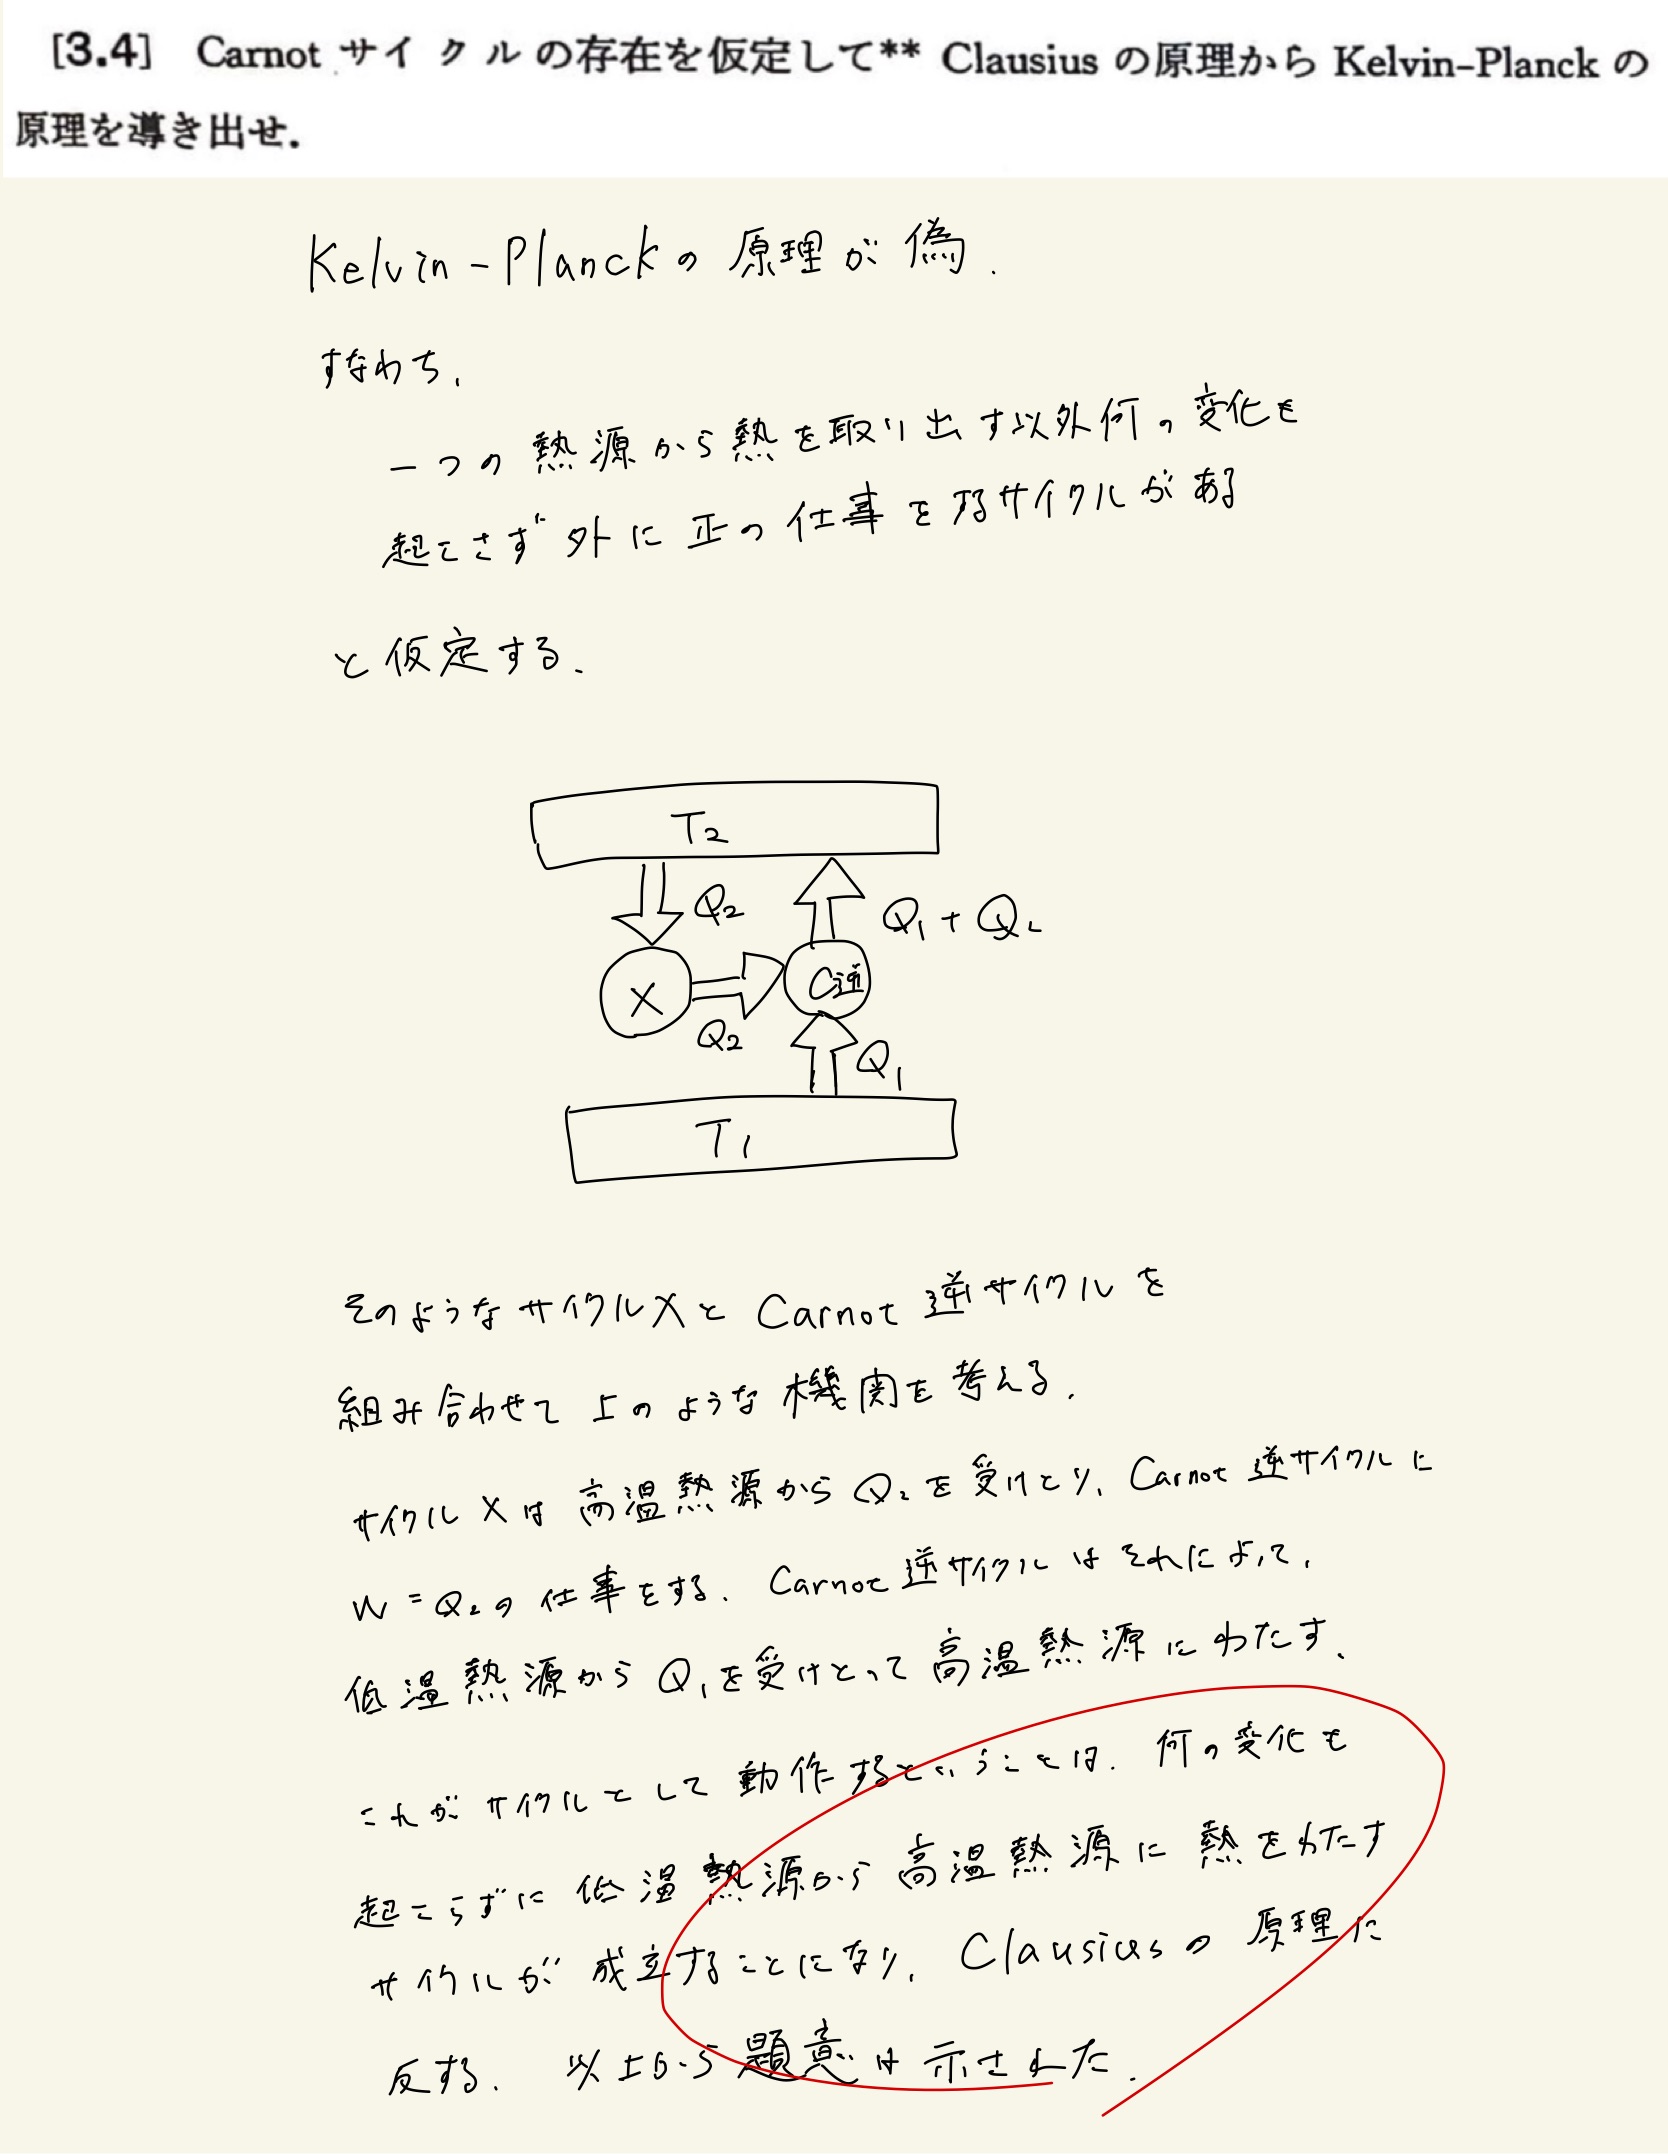 [3.4] Carnot サイクルの存在を仮定して** Clausius の原理から Kelvin-Planck の
原理を導き出せ.
Kelvin-Planckの原理が偽.
すなわち,
一つの熱源から熱を取り出す以外何の変化を
起こさず外に正の仕事をするサイクルがある
と仮定する.
T2
Q2
Q1+Q2
X
C逆
Q2
Q1
T1
そのようなサイクルXとCarnot逆サイクルを
組み合わせて上のような機関を考える.
サイクルXは高温熱源からQ2を受けとり, Carnot逆サイクルに
W=Q2の仕事をする. Carnot逆サイクルはそれによって,
低温熱源からQ1を受けとって高温熱源にわたす.
これがサイクルとして動作するということは, 何の変化も
起こらずに低温熱源から高温熱源に熱をわたす
サイクルが成立することになり, Clausiusの原理に
反する. 以上から題意は示された.